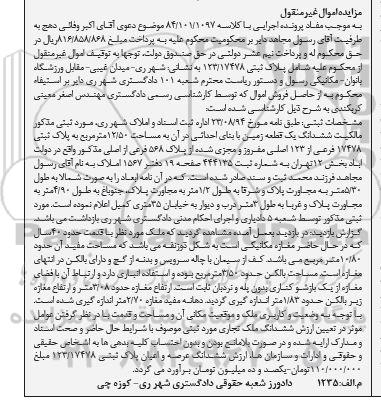 مزایده اموال غیرمنقول
به موجب مفاد پرونده اجرایی با کلاسه ۸۴/۱۰۱/۱۰۹۷ موضوع دعوی آقای اکبر وفائی دهج به
طرفیت آقای رسول مجاهد دایر بر محکومیت محکوم علیه به پرداخت مبلغ ۸۱۶/۸۵۸/۸۶۸ ریال در
حق محکوم له و پرداخت نیم عشر دولتی در حق صندوق دولت، توجها به توقیف اموال غیرمنقول
از محکوم علیه شامل پلاک ثبتی ۱۲۳/۱۷۴۷۸ به نشانی: شهر ری- میدان غیبی- مقابل ورزشگاه
بانوان- مکانیکی رسول و دستور ریاست محترم شعبه ۱۰۱ دادگستری شهر ری دایر بر استیفاء
محکوم به از حاصل فروش اموال که توسط کارشناس رسمی دادگستری مهندس اصغر معینی
کربکندی به شرح ذیل کارشناسی شده است:
مشخصات ثبتی: طبق نامه مورخ ۲۳/۰۸/۹۴ اداره ثبت اسناد و املاک شهر ری، مورد ثبتی مذکور
مالکیت ششدانگ یک قطعه زمین با بنای احداثی در آن به مساحت ۱۲/۵۰ مترمربع به پلاک ثبتی
۱۷۴۷۸ فرعی از ۱۲۳ اصلی مفروز و مجزی شده از پلاک ۵۶۸ فرعی از اصلی مذکور واقع در دولت
اباد بخش ۱۲ تهران به شماره ثبت ۴۴۴۱۳۵ صفحه ۱۹ دفتر ۱۵۶۷ املاک به نام آقای رسول
مجاهد فرزند محمد ثبت و سند صادر شده است. که در آن نامه ابعاد را به صورت شمالا به طول
۵/۳۰ متر به مجاورت پلاک و شرقا به طول ۱/۲ متر به مجاورت پلاک، جنوبا به طول ۴/۹۰ متر به
مجاورت پلاک و غربا به طول ۳ متر درب و دیوار به خیابان ۳۵ متری کمیل اعلام نموده است. مورد
ثبتی مذکور توسط شعبه ۵ دادیاری و اجرای احکام مدنی دادگستری شهر ری بازداشت می باشد.
گزارش بازدید: در بازدید بعمل آمده مشاهده گردید که ملک مورد نظر با قدمت حدود ۴۰ سال
که در حال حاضر مغازه مکانیکی است به شکل ذوزنقه می باشد که مساحت مفید آن حدود
۱۰/۸۰ متر مربع می باشد. کف از سیمان با چاله سرویس و بدنه از گچ و دارای بالکن در انتهای
مغازه است. مساحت بالکن حدود ۳/۵۰ مترمربع بوده و استفاده انباری دارد و ارتباط آن با فضای
مغازه از یک بازشو کناری بدون پله و نردبان ثابت است. ارتفاع مغازه حدود ۳/۰۸ متر و ارتفاع مغازه
زیر بالکن حدود ۱/۸۳ متر اندازه گیری گردید. دهانه مفید مغازه ۲/۷۰ متر اندازه گیری شده است.
با توجه به وضعیت و کاربری ملک و موقعیت مکانی آن و مساحت و قدمت بنا، در نظر گرفتن عوامل
موثر در تعیین ارزش ششدانگ ملک تجاری مورد ثبتی موصوف با شرایط حال حاضر و صحت اسناد
و مدارک ارایه شده و در صورت بلامانع بودن و بدون احتساب کلیه بدهی ها به اشخاص حقیقی
و حقوقی و ادارات و سازمان ها، ارزش ششدانگ عرصه و اعیان پلاک ثبتی ۱۲۳/۱۷۴۷۸ مبلغ
۱۱۰/۰۰۰/۰۰۰ تومان- یکصد و ده میلیون تومان برآورد می گردد.
م.الف: ۱۲۳۵ دادورز شعبه حقوقی دادگستری شهر ری- کوزه چی